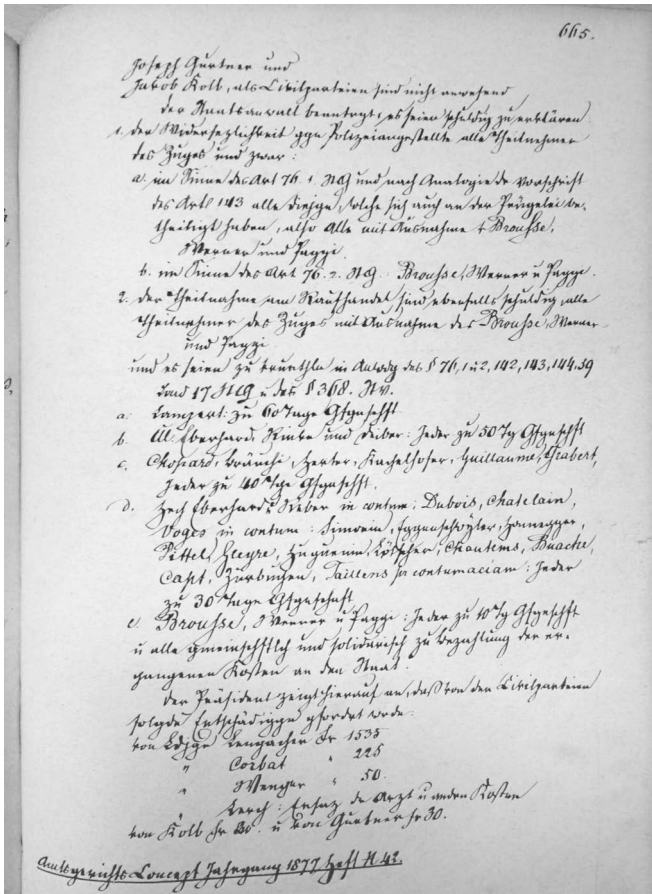 665.
Joseph Gurtner und
Jakob Kolb, als Civilparteien sind nicht anwesend
der Staatsanwalt beantragt, es seien schuldig zu erklären
1. der Widersezlichkeit ggn Polizeiangestellte alle Theilnehmer
des Zuges und zwar:
a. im Sinne des Art 76. 1. StG und nach Analogie der Vorschrift
des Arts 143 alle diejgn, welche sich auch an der Prügelei be-
theiligt haben, also Alle mit Ausnahme v Brousse,
Werner und Paggi.
b. im Sinne des Art 76. 2. StG. Brousse, Werner u Paggi.
2. der Theilnahme am Raufhandel sind ebenfalls schuldig, alle
Theilnehmer des Zuges mit Ausnahme des Brousse, Werner
und Paggi
und es seien zu in des § 76, 1 u 2, 142, 143, 144, 59
und 17 StG u des § 368. StV.
a. Lampert: zu 60 Tage Gfgnschft
b. Ul. Eberhard, Rinke und Deiber: Jeder zu 50 Tg Gfgnschft
c. Chopard, Bräuchi, Herter, Kachelhofer, Guillaume, Grabert,
Jeder zu 40 Tge Gfgnschft.
d. Eberhard, in contum: Dubois, Chatelain,
Voges in contum: Simonin, Eggenschwyler, Hornegger,
Pittet, Huguenin, Lötscher, Chautems, Buache,
Capt, Zurbuchen, Taillens in contumaciam: Jeder
zu 30 Tage Gfgnschaft
e. Brousse, Werner u Paggi: Jeder zu 10 Tg Gfgnschft
u alle gmeinschftlich und solidarisch zu Bezahlung der er-
gangenen Kosten an den Staat.
Der Präsident zeigt hierauf an, daß von den Civilparteien
folgde Entschädiggn gfordert wrde:
von Ldjgr Lengacher Fr 1535
" Corbat " 225
" Wenger " 50.
Lerch: Ersaz der Arzt u andrn Kosten
von Kolb Fr 20. u von Gurtner fr 30.
Amtsgerichts Concept Jahrgang 1877 Heft N 42.